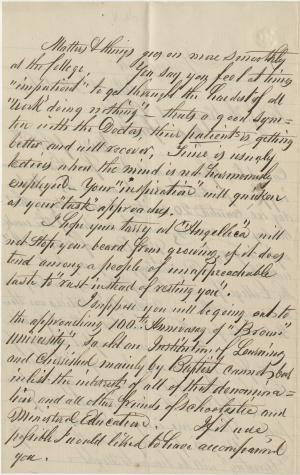 Matters & things goes on more smoothly
at the College. You say you feel at times
"impatient" to get through the hardest of all
"work doing nothing" — thats a good symp-
tom with the Doctors their patient is getting
better and will recover, Time is
when the mind is not harmoniously
employed. Your "inspiration" will quicken
as your "task" approaches.
I hope your tarry at "Angellica" will
not stop your beard from growing, if it does
tend among a people of "unapproachable
taste to "rest instead of resting you".
I suppose you will be going out to
the approaching 100th Anniversary of "Brown
University". So old an Institution of Learning
and cherished mainly by Baptist cannot but
inlist the interest of all of that denomina-
tion and all other friends of scholastic and
Ministerial Education. If it was
possible I would liked to have accompanied
you.